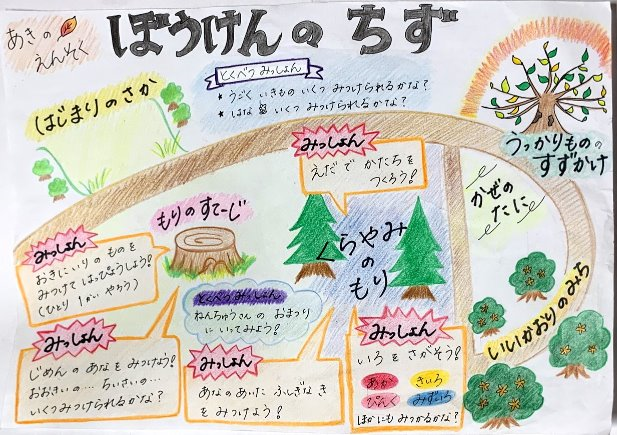 あきの
えんそく
ぼうけんの ちず
とくべつ みっしょん
★ うごく いきもの いくつ みつけられるかな?
★ はな いくつ みつけられるかな?
はじまりのさか
うっかりものの
すずかけ
みっしょん
えだで かたちを
つくろう!
かぜの
たに
もりのすてーじ
くらやみ
の
もり
みっしょん
おきにいり の ものを
みつけて はっぴょうしよう!
(ひとり 1かい やろう)
とくべつ みっしょん
ねんちゅうさんの おまつり
に いってみよう!
いいかおりのみち
みっしょん
じめんの あなを みつけよう!
おおきいの… ちいさいの…
いくつみつけられるかな?
みっしょん
あなのあいた ふしぎな き
を みつけよう!
みっしょん
いろ を さがそう!
あか きいろ
ぴんく みずいろ
ほかにも みつかるかな?